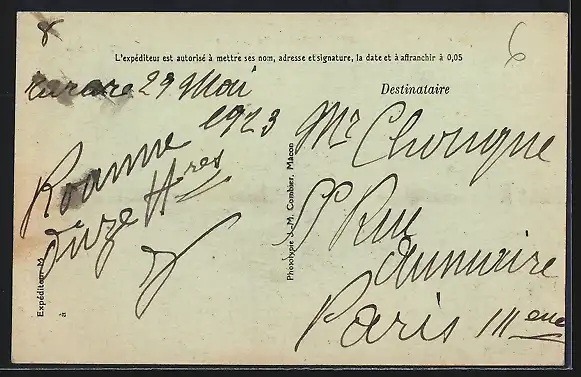 L'expéditeur est autorisé à mettre ses nom, adresse et signature, la date et à affranchir à 0,05
6
Tarare 29 Mai
1923
Roanne
onze Hres
Destinataire
Mr Chougne
Rue
Aumaire
Paris IIIeme
Phototypie J.-M. Combier, Macon
Expéditeur M